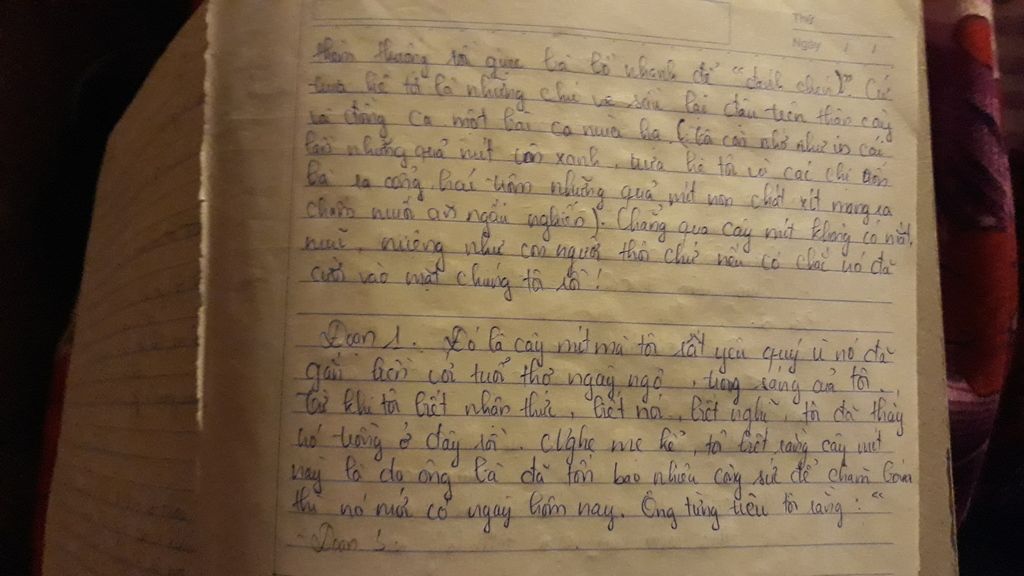 Thứ
Ngày / /
thương rồi quên là nhanh để "đánh chén)". Cứ
trưa hè tôi là những chú ve sầu lại đầu tiên thân cây
và đồng ca một bài ca mùa hạ. (tôi còn nhớ như in cái
lần những quả mít còn xanh, trưa hè tôi và các chị
la ra cổng hái trộm những quả mít non chát xít mang ra
chấm muối ăn ngấu nghiến). Chẳng qua cây mít không có mắt,
mũi, miệng như con người thôi chứ nếu có chắc nó đã
cười vào mặt chúng tôi rồi!
Đoạn 1. Đó là cây mít mà tôi rất yêu quý vì nó đã
gắn liền với tuổi thơ ngây ngô, trong sáng của tôi.
Từ khi tôi biết nhận thức, biết nói, biết nghĩ, tôi đã thấy
nó trồng ở đây rồi. Nghe mẹ kể, tôi biết rằng cây mít
này là do ông bà đã tốn bao nhiêu công sức để chăm bón
thì nó mới có ngày hôm nay. Ông từng tiêu tôi rằng: "
Đoạn 1.